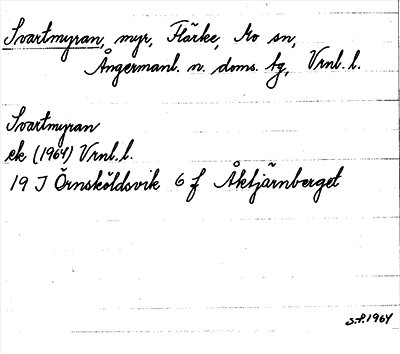 Svartmyran, myr, Flärke, Mo sn,
Ångermanl. n. doms. tg, Vrnl. l.
Svartmyran
ek (1964) Vrnl. l.
19 J Örnsköldsvik 6 f Åktjärnberget
S.P. 1964